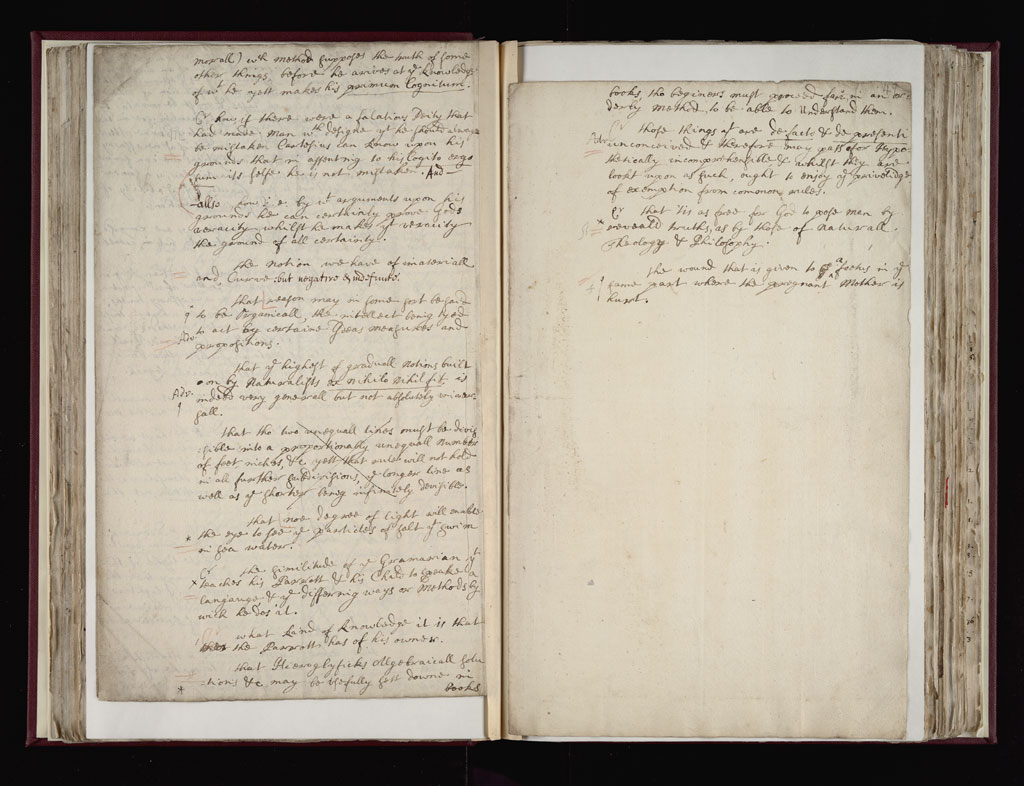 morall) wch method supposes the truth of some
other things, before he arives at ye Knowledg
of wt he yett makes his primum Cognitum.
if there were a falatious Deity that
had made Man wth designe yt he should alwayes
be mistaken Cartesius can know upon his
grounds that in assenting to his Cogito ergo
sum its selfe he is not mistaken. And—
—allso how i.e. by wt arguments upon his
grounds he can certainly prove Gods
veracity whilst he makes yt veracity
the ground of all certainty.
the Notion we have of imateriall
and Curve but negative & indefinite.
that reason may in some sort be said
to be Organicall, the intellect being tyed
Adv. to act by certaine Ideas measures and
propositions.
that ye highest of graduall Notions built
on by Naturalists ex nihilo nihil fit is
Adv. indeed very generall but not absolutely univer-
sall.
that tho two unequall lines must be divi-
sible into a proportionably unequall number
of feet inches, &c yett that rule will not hold
in all further subdivisions, ye longer line as
well as ye shorter being infinitely devisible.
that noe degree of light will enable
* the eye to see ye particles of salt yt swim
in sea water.
the similitude of ye Gramarian yt
x teaches his Parrott & his Child to speake a
Languange & ye differing ways or Methods by
wich he dos it.
what kind of Knowledge it is that
the Parrott has of his owner.
that Hieroglyficks Allgebraicall solu-
* tions &c may be usefully sett downe in
books
books tho beginers must proceed fair in an or-
derly method, to be able to Understand them.
those things yt are de facto & de presenti
Adv. unconceived & therefore may pass for Hypo-
thetically incomprehensible & whilst they are
lookt upon as such, ought to enjoy ye priveledge
of exemption from common rules.
that 'tis as free for God to pose man by
* reveald truths, as by those of Naturall
Theology & Philosophy.
the wound that is given to a foetus in ye
same part where the pregnant Mother is
hurt.